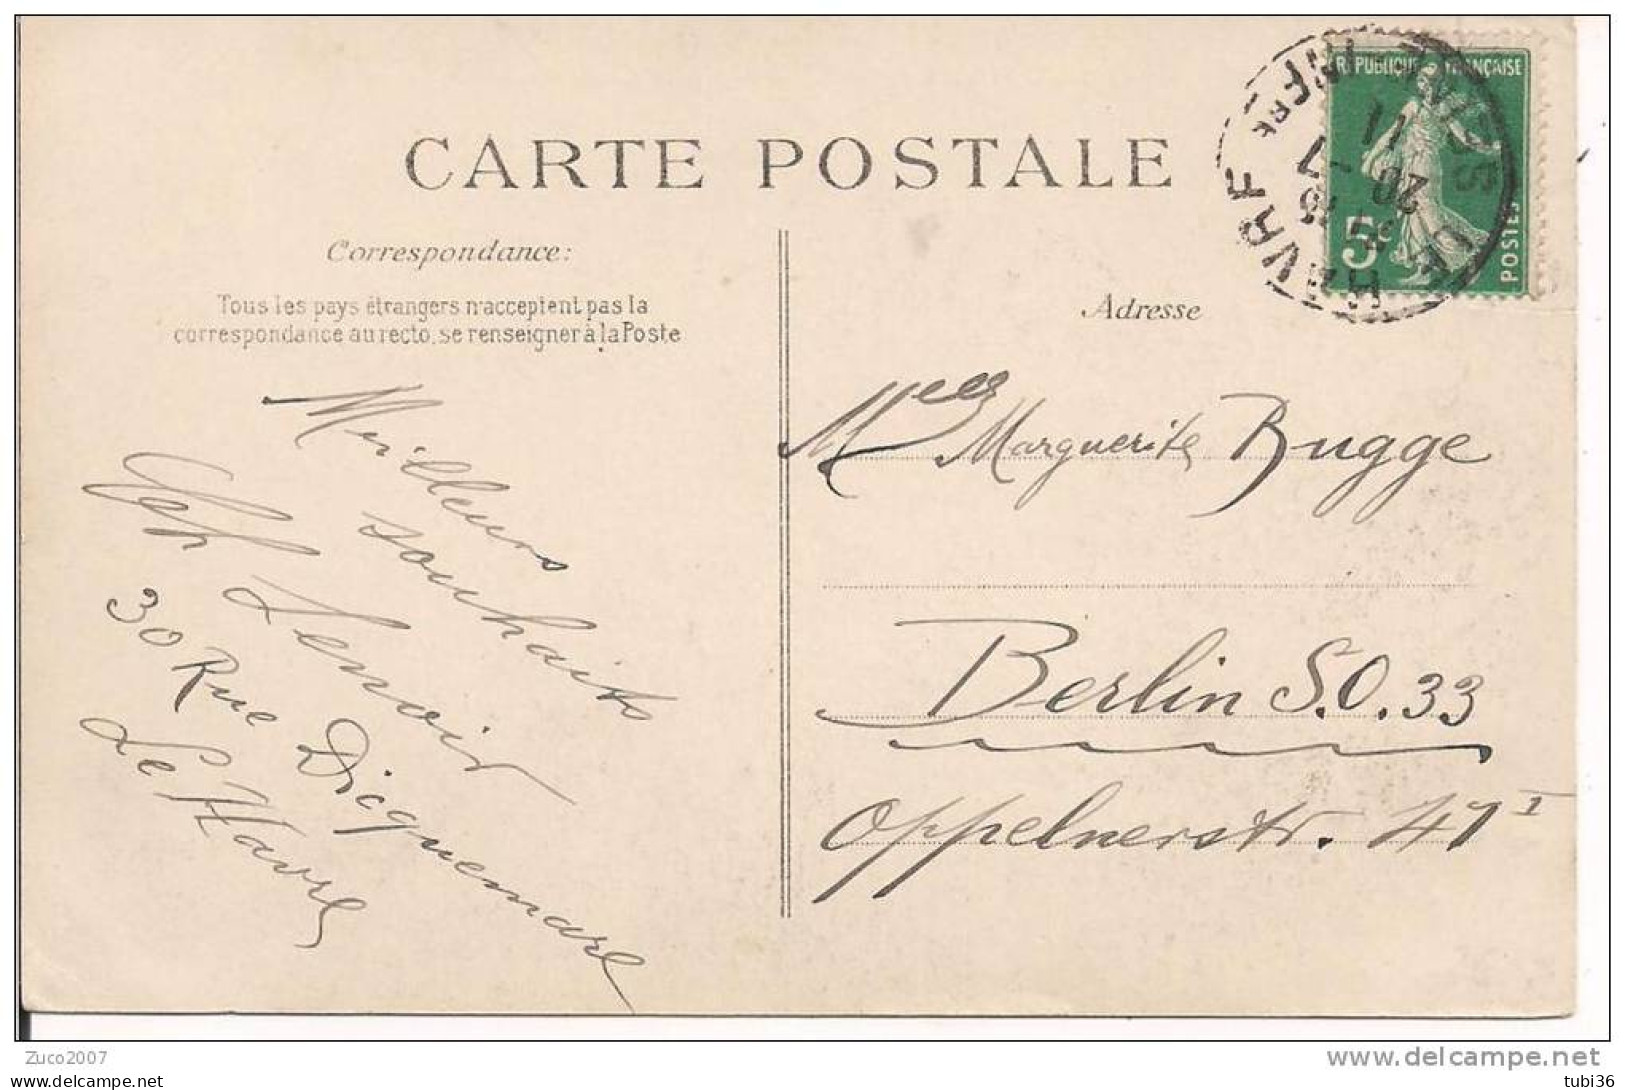 CARTE POSTALE
Correspondance:
Tous les pays étrangers n'acceptent pas la
correspondance au recto, se renseigner à la Poste
Meilleurs
souhaits
Lenoir
30 Rue Dicquemare
Le Havre
Adresse
Melle Marguerite Bugge
Berlin S.O. 33
Oppelnerstr. 47 I
RÉPUBLIQUE FRANÇAISE
5c
POSTES
LE HAVRE
SEINE INFRE
20 -7
11
Zuco2007
www.delcampe.net
tubi36